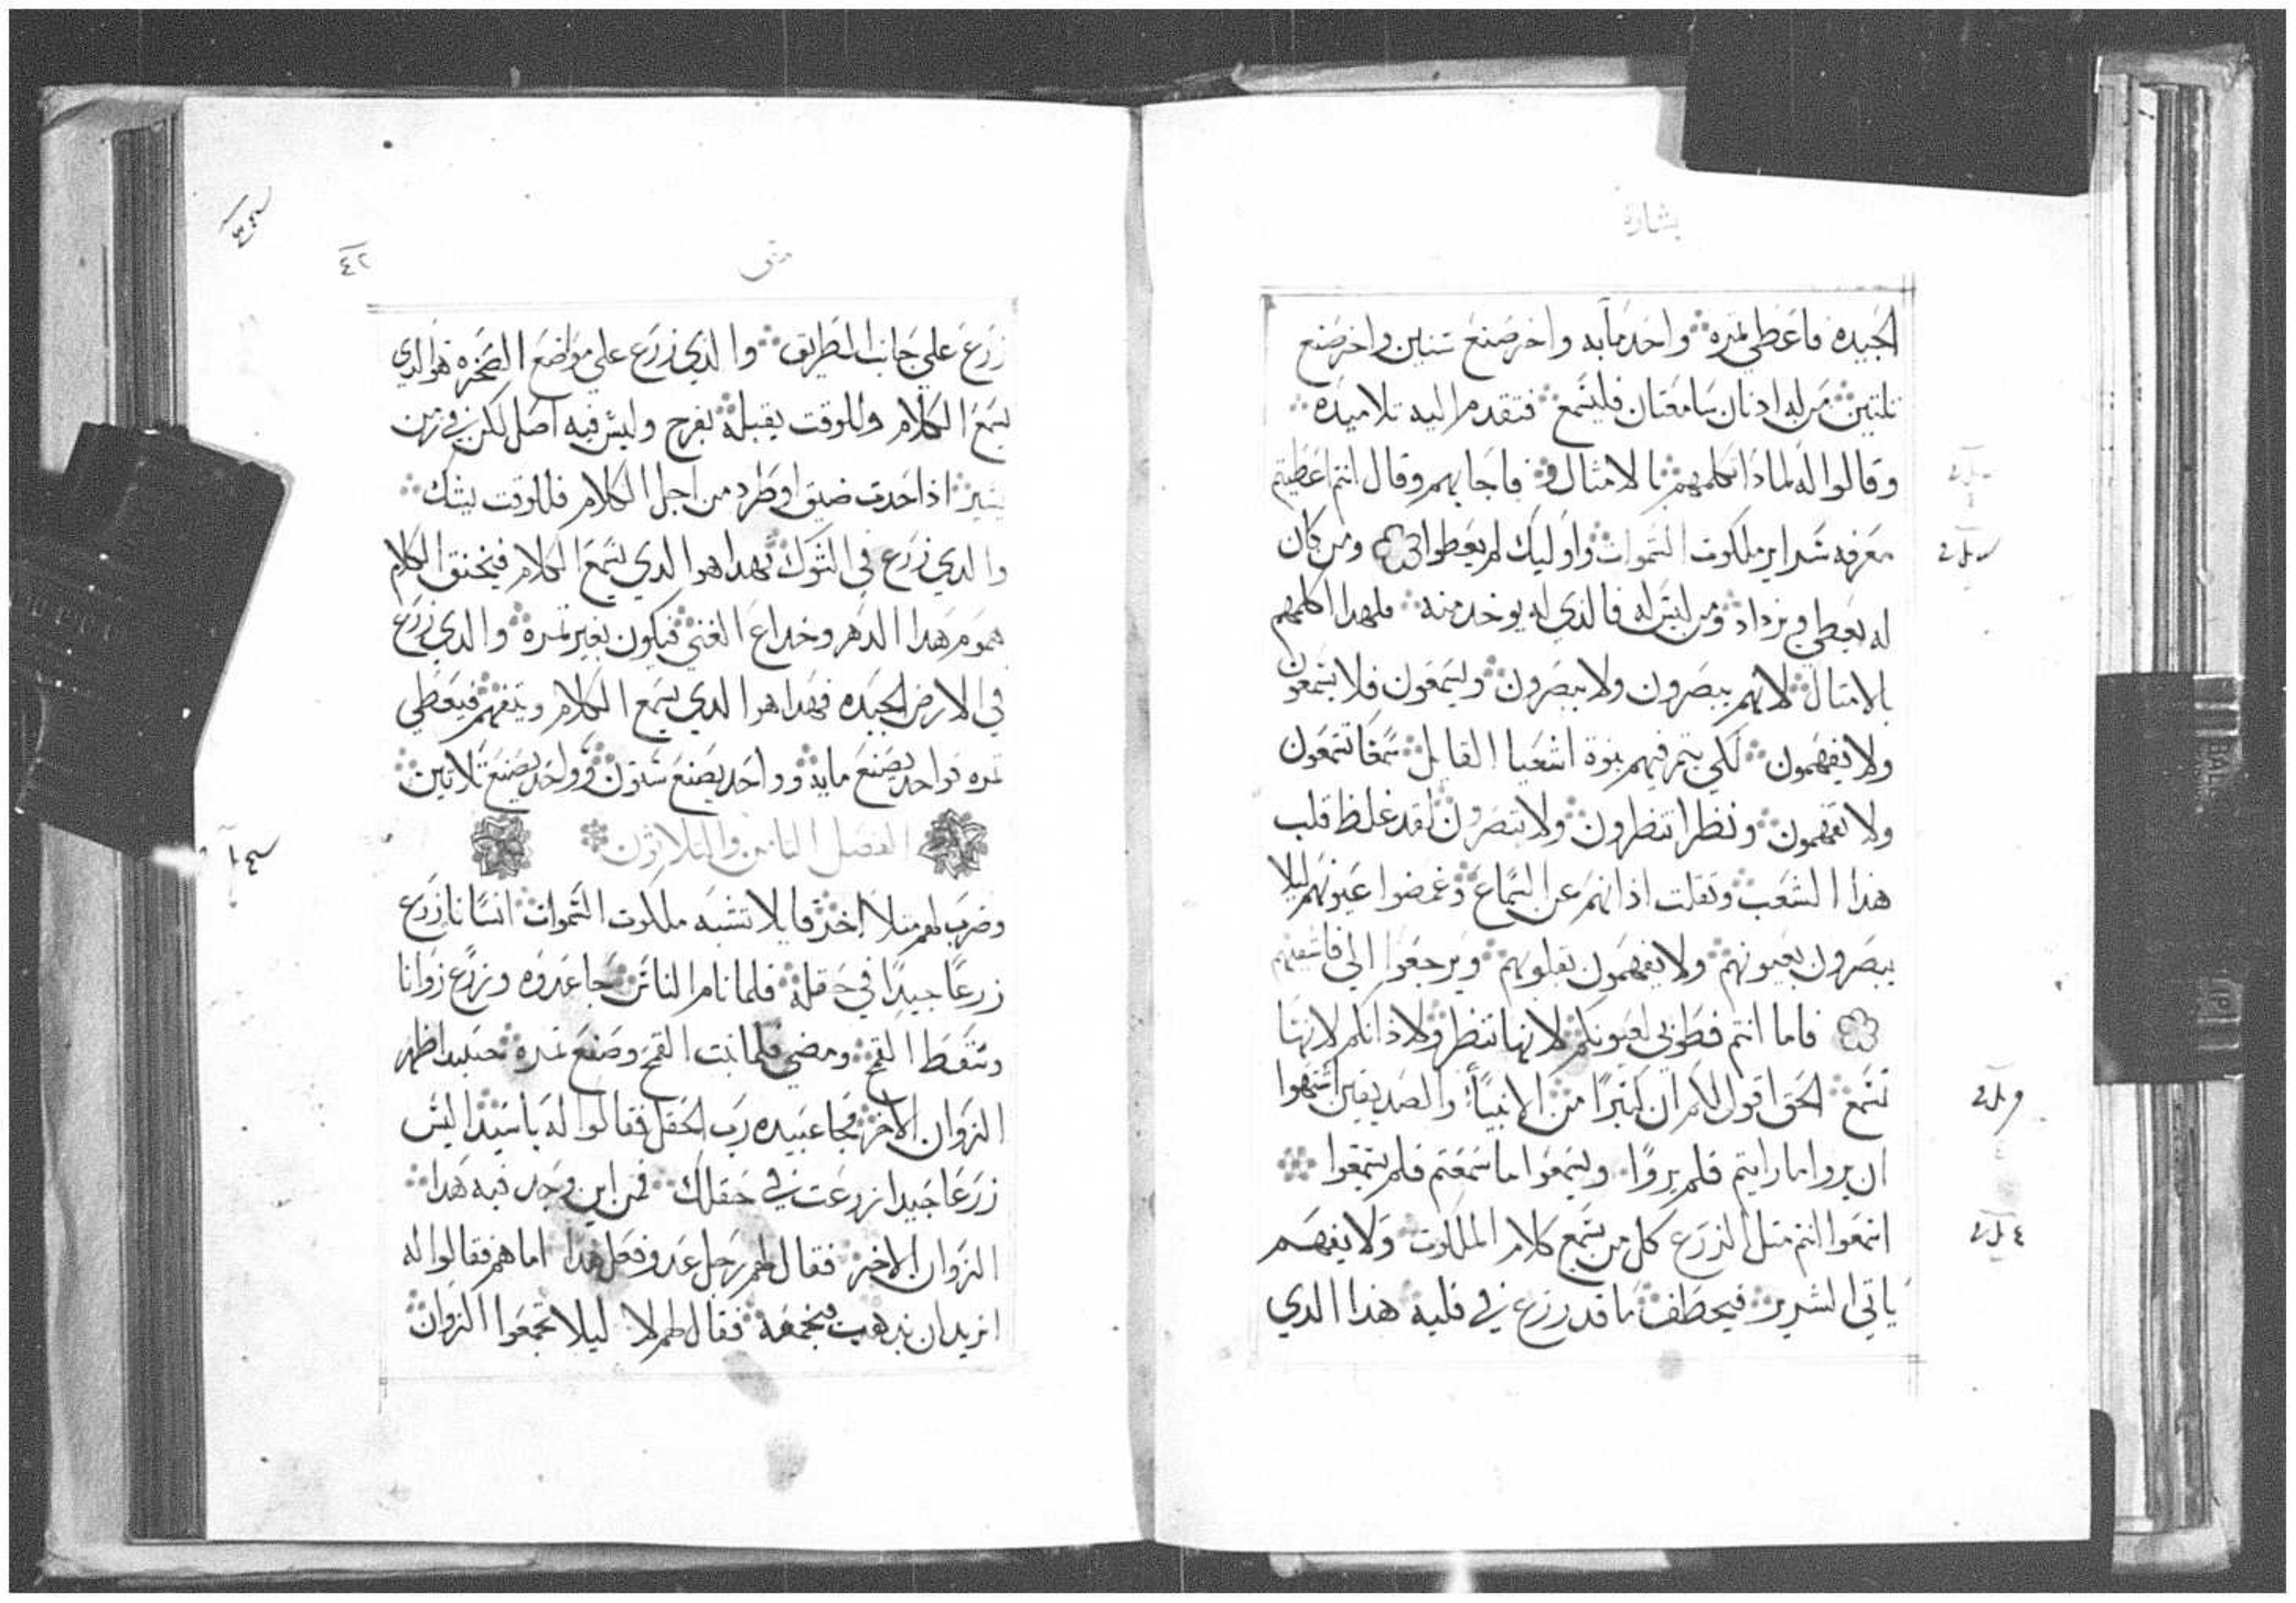 بشارة
الجيده فاعطي تمره واحد مايه واخر صنع ستين واخر صنع
تلتين من له ادنان سامعتان فليسمع فتقدم اليه تلاميده
وقالوا له لمادا تكلمهم بالامثال فاجابهم وقال انتم اعطيتم
معرفه سراير ملكوت السموات واوليك لم يعطوا ومن كان
له يعطي ويزداد ومن ليس له فالذي له يوخد منه فلهدا اكلمهم
بالامتال لانهم يبصرون ولا يبصرون ويسمعون فلا يسمعون
ولا يفهمون لكي يتم فيهم نبوة اشعيا القايل سمعًا تسمعون
ولا تفهمون ونظرا تنظرون ولا تبصرون لقد غلظ قلب
هذا الشعب وتقلت اذانهم عن السماع وغمضوا عيونهم ليلا
يبصرون بعيونهم ولا يفهمون بقلوبهم ويرجعوا الي فاشفيهم
فاما انتم فطوبي لعيونكم لانها تنظر ولاذانكم لانها
تسمع الحق اقول لكم ان كثيرًا من الانبياء والصديقين اشتهوا
ان يروا ما رايتم فلم يروًا ويسمعوا ما سمعتم فلم يسمعوا
اسمعوا انتم متل الزرع كل من يسمع كلام الملكوت ولا يفهم
ياتي الشرير فيخطف ما قد زرع في قلبه هذا الدي
متى
٤٢
زرع علي جانب الطريق والذي زرع علي مواضع الصخره هو الدي
يسمع الكلام وللوقت يقبله بفرح وليس فيه اصل لكن في زمن
يسير اذا حدت ضيق او طرد من اجل الكلام فللوقت يشك
والدي زرع في الشوك فهدا هو الدي يسمع الكلام فيخنق الكلام
هموم هدا الدهر وخداع الغني فيكون بغير تمره والدي زرع
في الارض الجيده فهدا هو الدي يسمع الكلام ويتفهم فيعطي
تمره فواحد يصنع مايه وواحد يصنع ستون وواحد يصنع تلاتين
الفصل التامن والتلاتون
وضرب لهم متلا اخر قايلا تشبه ملكوت السموات انسانا زرع
زرعًا جيدًا في حقله فلما نام الناس جا عدوه وزرع زوانا
وسط القمح ومضي فلما نبت القمح وصنع تمره حينيد اظهر
الزوان الاخر فجا عبيده رب الحقل فقالوا له يا سيد اليس
زرعا جيدا زرعت في حقلك فمن اين وجد فيه هدا
الزوان الاخر فقال لهم رجل عدو فعل هدا اما هم فقالوا له
اتريد ان ندهب فنجمعه فقال لهم لا ليلا تجمعوا الزوان